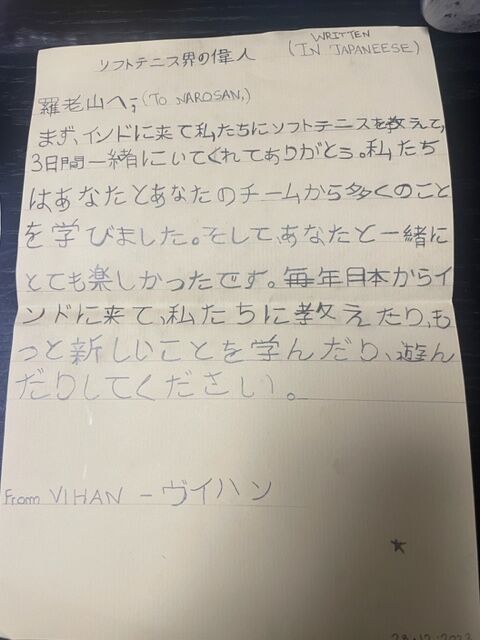 WRITTEN
ソフトテニス界の偉人 (IN JAPANEESE)
羅老山へ; (TO NAROSAN,)
まず、インドに来て私たちにソフトテニスを教えて、
3日間一緒にいてくれてありがとう。私たち
はあなたとあなたのチームから多くのこと
を学びました。そして、あなたと一緒に
とても楽しかったです。毎年日本からイ
ンドに来て、私たちに教えたり、も
っと新しいことを学んだり、遊ん
だりしてください。
From VIHAN - ヴイハン